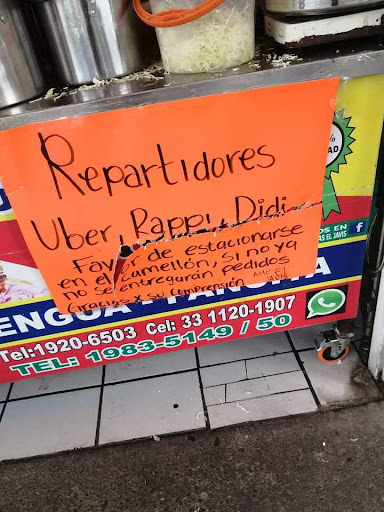 Repartidores
Uber, Rappi, Didi
Favor de estacionarse
en el Camellón, Si no ya
no se entregarán pedidos
Gracias x su comprensión
Att: El
JAVIS
AD
OS EN
AS EL JAVIS
ENGUA
Tel:1920-6503 Cel: 33 1120-1907
TEL: 1983-5149 / 50